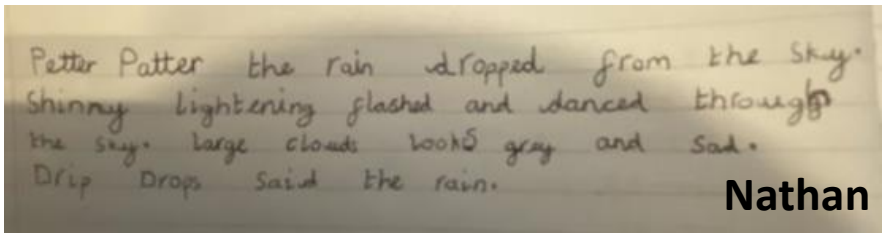 Petter Patter the rain dropped from the sky.
Shinny lightening flashed and danced through
the sky. Large clouds looks grey and sad.
Drip Drops said the rain.
Nathan